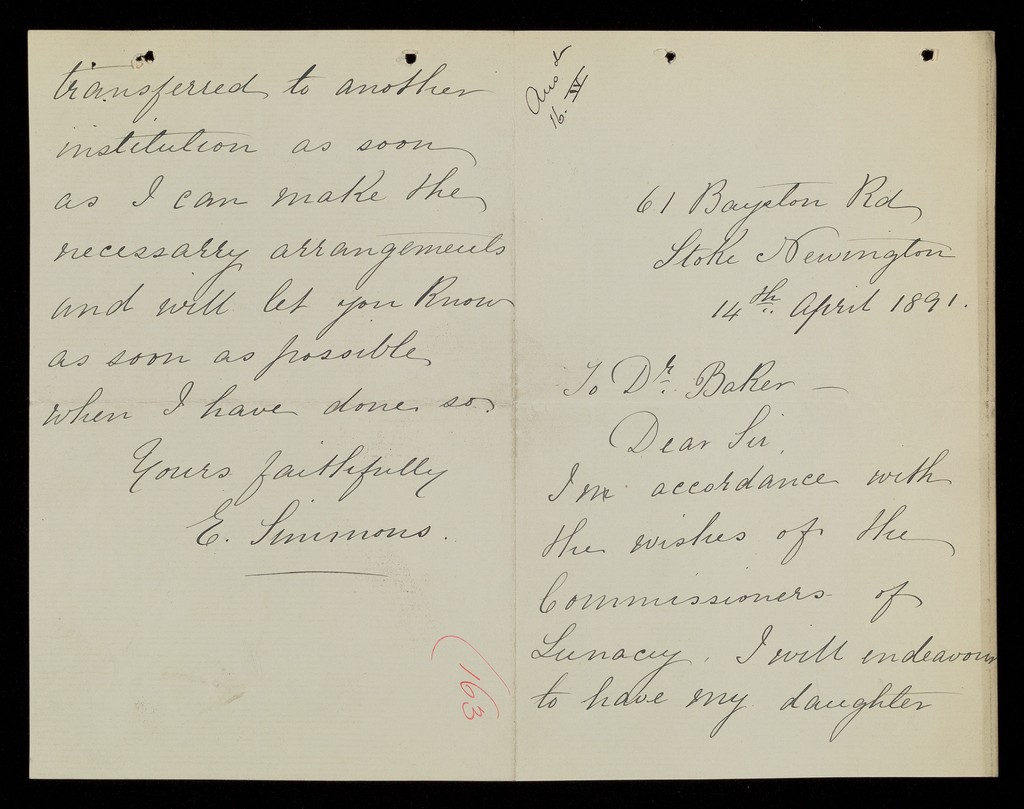 Ansd
16. IV
61 Bayston Rd
Stoke Newington
14th. April 1891.
To Dr. Baker —
Dear Sir,
In accordance with
the wishes of the
Commissioners of
Lunacy. I will endeavour
to have my daughter
transferred to another
institution as soon
as I can make the
necessarry arrangements
and will let you know
as soon as possible
when I have done so.
Yours faithfully
E. Simmons.
163